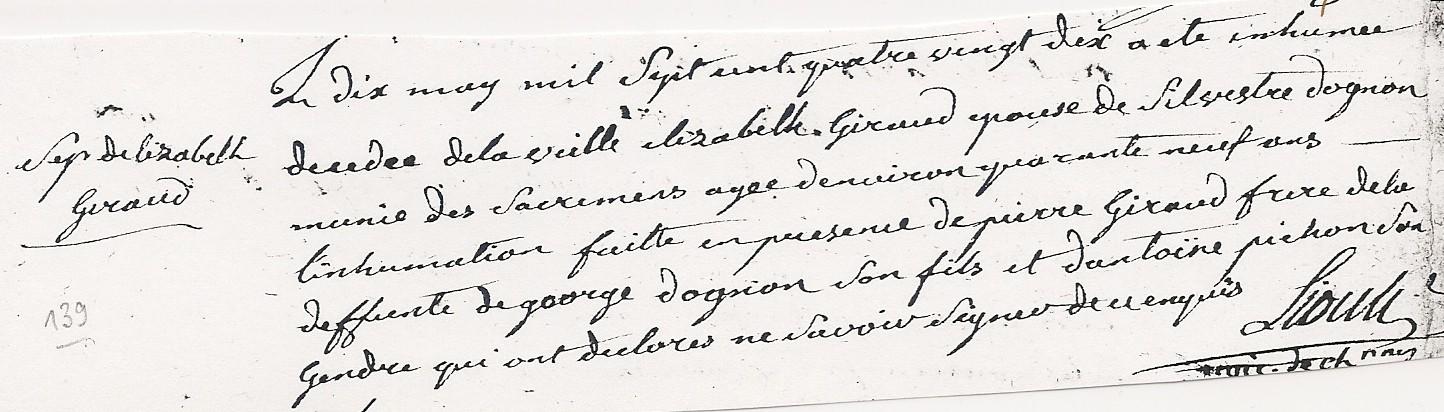 Le dix may mil sept cent quatre vingt dix a ete inhumée
decedee de la veille elizabelh Giraud epouse de Silvestre dognon
Sep. de lizabelh
Giraud
munie des Sacremens agee denviron quarante neuf ans
l'inhumation faitte en presence de pierre Giraud frere de la
deffunte de george dognon son fils et dantoine pichon son
139
Gendre qui ont declares ne savoir signer de ce enquis